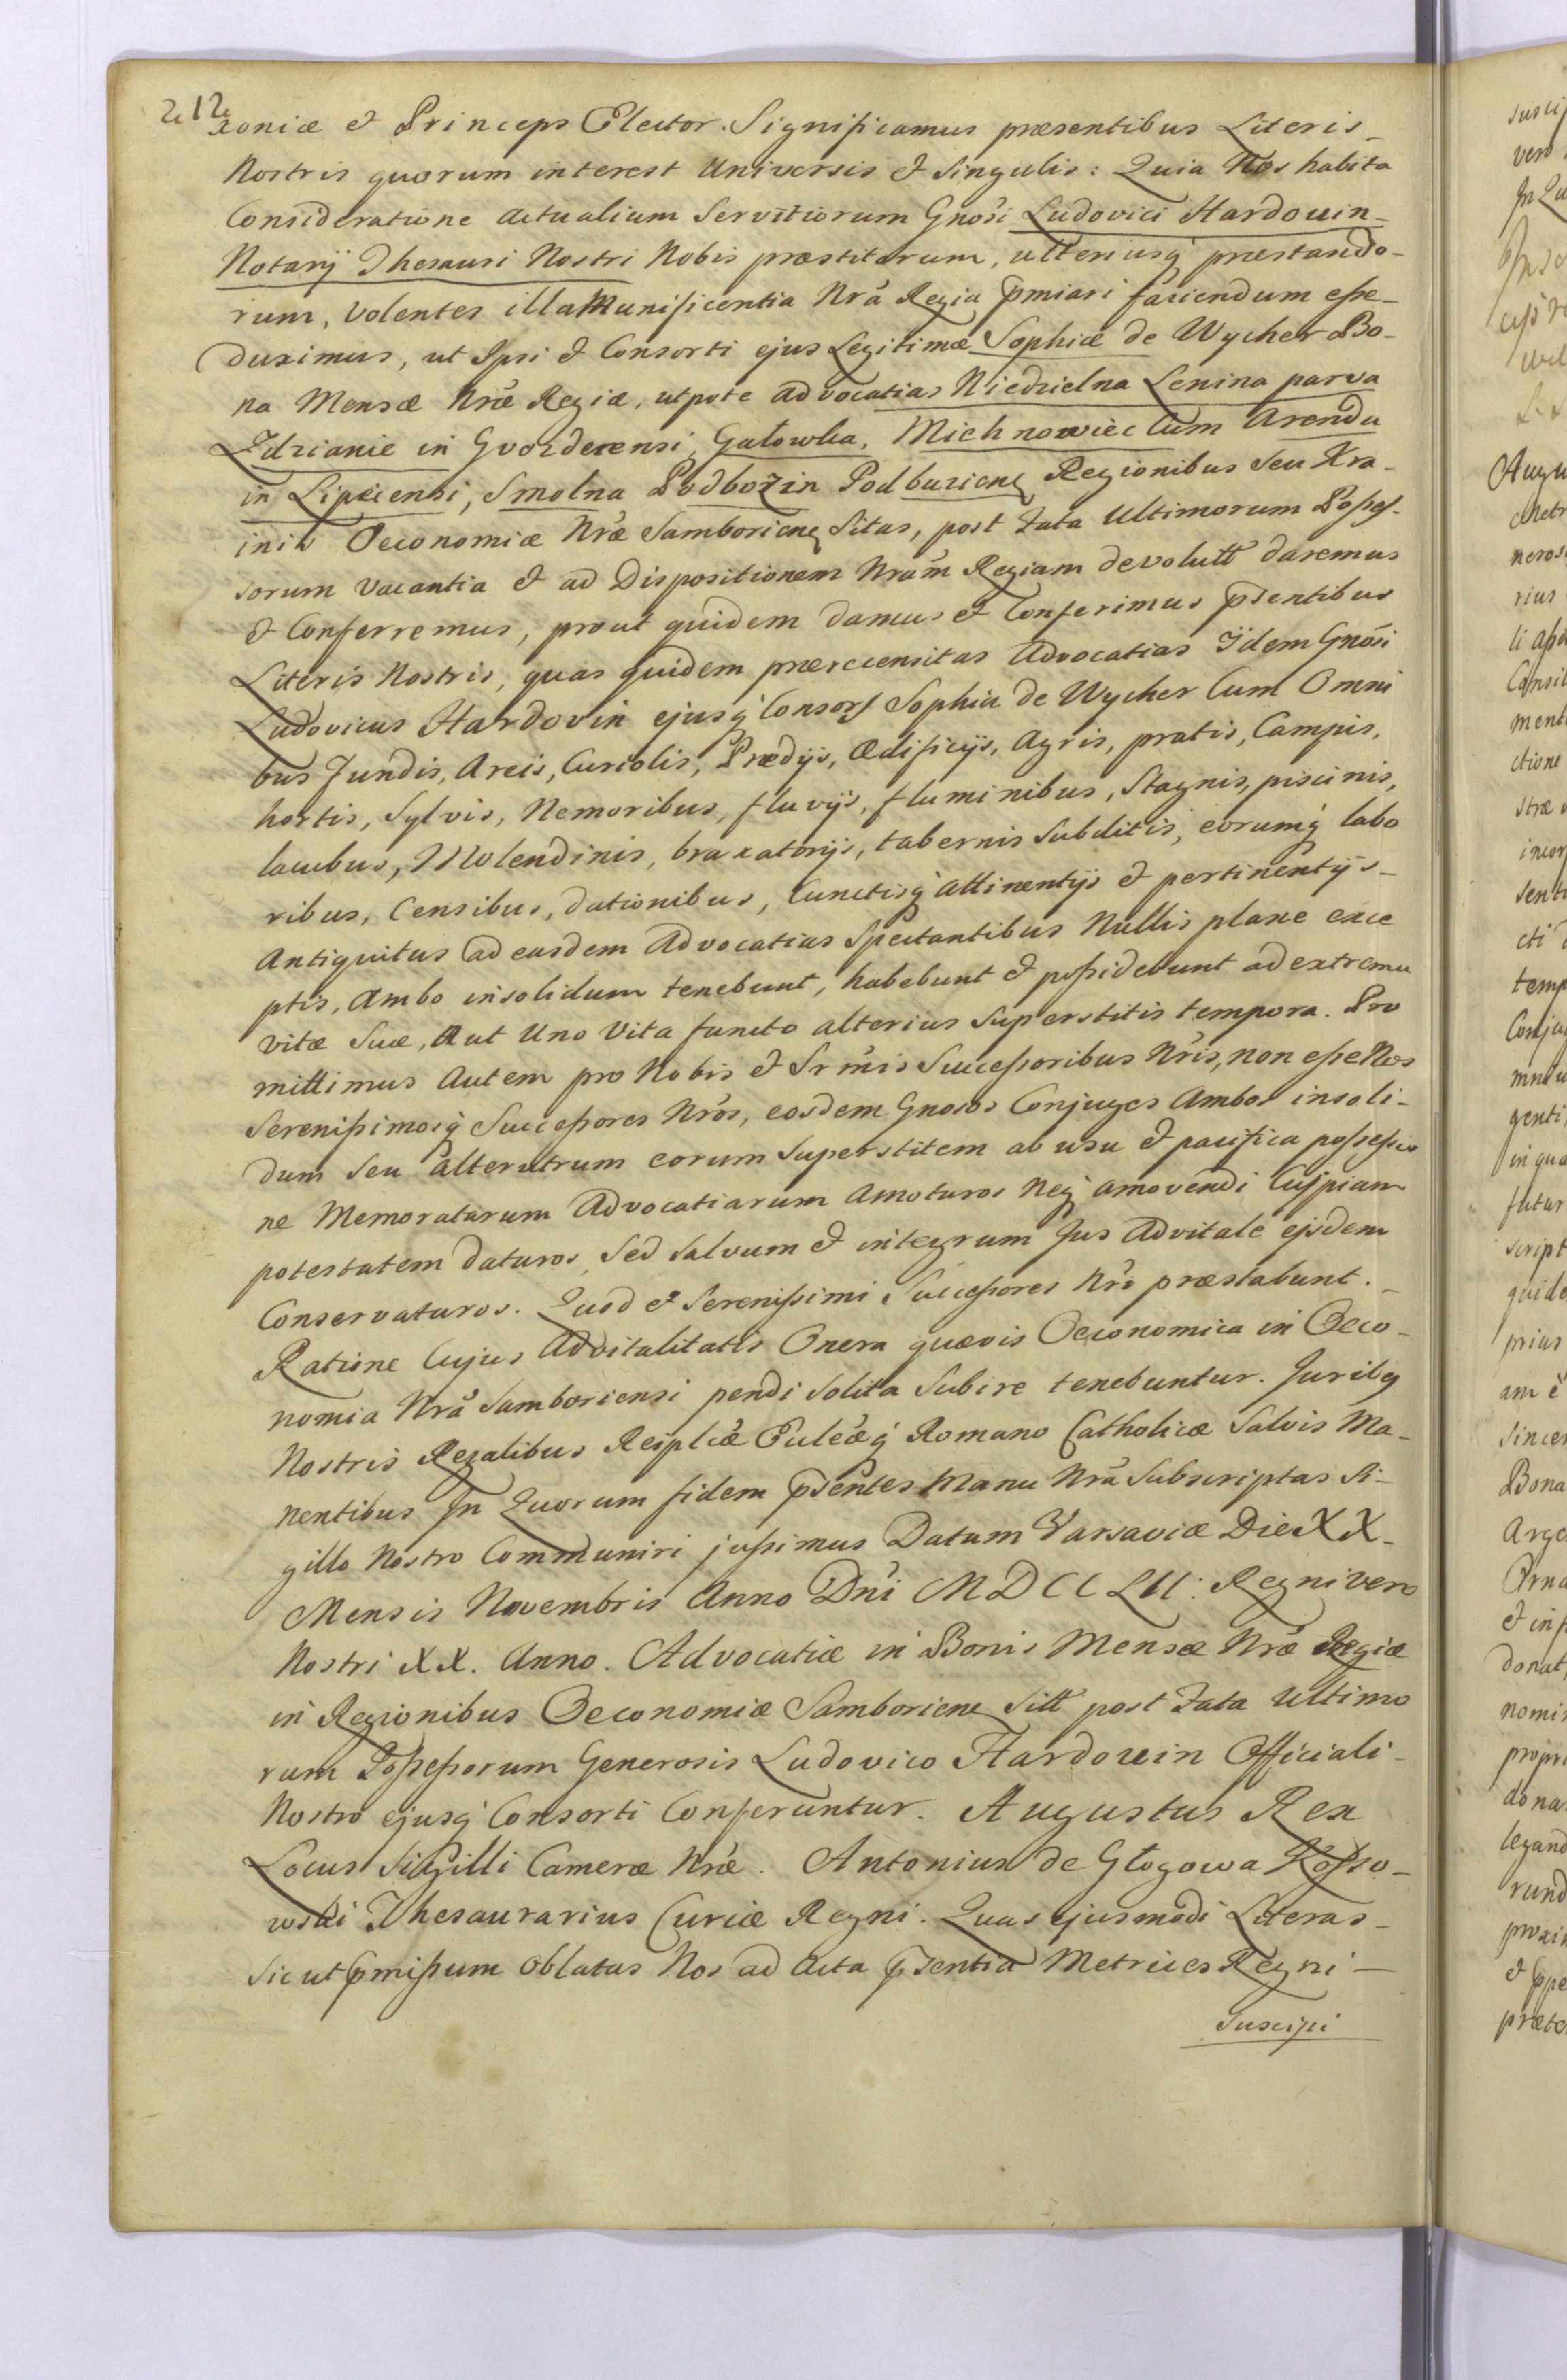 212
xoniæ et Princeps Elector. Significamus præsentibus Literis
Nostris quorum interest Universis et Singulis: Quia Nos habita
Consideratione actualium Servitiorum Gnosi Ludovici Hardouin
Notarij Thesauri Nostri Nobis præstitorum, ulteriusq præstando-
rum, volentes illa Munificentia Nrâ Regia pmiari faciendum esse
duximus, ut Ipsi et Consorti ejus Legitimæ Sophiæ de Wycher Bo-
na Mensæ Nræ Regiæ, utpote advocatias Niedzielna Lenina parva
Zdzianie in Gvozdecensi, Gałowka, Michnowiec Cum Arenda
in Lipecensi, Smolna Podbozin Podbuzieng Regionibus Seu Kra-
inis Oeconomiæ Nræ Samboriens Sitas, post Fata Ultimorum Posses-
sorum vacantia et ad Dispositionem Nram Regiam devolutt daremus
et Conferremus, prout quidem damus et Conferimus psentibus
Literis Nostris, quas quidem præreccensitas Advocatias Iidem Gnosi
Ludovicus Hardovin ejusq Consors Sophia de Wycher Cum Omni
bus Fundis, Areis, Curiolis, Prædijs, Ædificijs, Agris, pratis, Campis,
hortis, Sylvis, Nemoribus, fluvijs, fluminibus, Stagnis, piscinis,
lacubus, Molendinis, braxatorijs, tabernis Subditis, eorumq labo
ribus, Censibus, dationibus, Cunctisq attinentijs et pertinentijs
Antiquitus ad easdem Advocatias Spectantibus Nullis plane exce
ptis, Ambo insolidum tenebunt, habebunt et possidebunt ad extrema
vitæ Suæ, aut Uno Vita functo alterius Superstitis tempora. Pro
mittimus Autem pro Nobis et Srmis Successoribus Nris, non esse Nos
Serenissimosq Successores Nros, eosdem Gnosos Conjuges Ambos insoli-
dum Seu alterutrum eorum Superstitem ab usu et pacifica possessio
ne Memoratarum Advocatiarum Amoturos Neq amovendi Cuipiam
potestatem daturos, Sed Salvum et integrum Jus Advitale ejsdem
Conservaturos. Quod et Serenissimi Successores Nri præstabunt.
Ratione Cujus Advitalitatis Onera quævis Oeconomica in Oeco-
nomia Nrâ Samboriensi pendi Solita Subire tenebuntur. Juribq
Nostris Regalibus Reiplcæ Eulæq Romano Catholicæ Salvis Ma-
nentibus In Quorum fidem psentes Manu Nrâ Subscriptas Si-
gillo Nostro Communiri jussimus Datum Varsaviæ Die XX
Mensis Novembris Anno Dni MDCCLII. Regni vero
Nostri XX. Anno. Advocatiæ in Bonis Mensæ Nræ Regiæ
in Regionibus Oeconomiæ Samboriens Sitt post Fata Ultimo
rum Possessorum Generosis Ludovico Hardouin Officiali
Nostro ejusq Consorti Conferuntur. Augustus Rex
Locus Sigilli Cameræ Nræ. Antonius de Głogowa Kosso-
wski Thesaurarius Curiæ Regni. Quas ejusmodi Literas
Sicut pmissum Oblatas Nos ad Acta psentia Metrices Regni
Suscipi